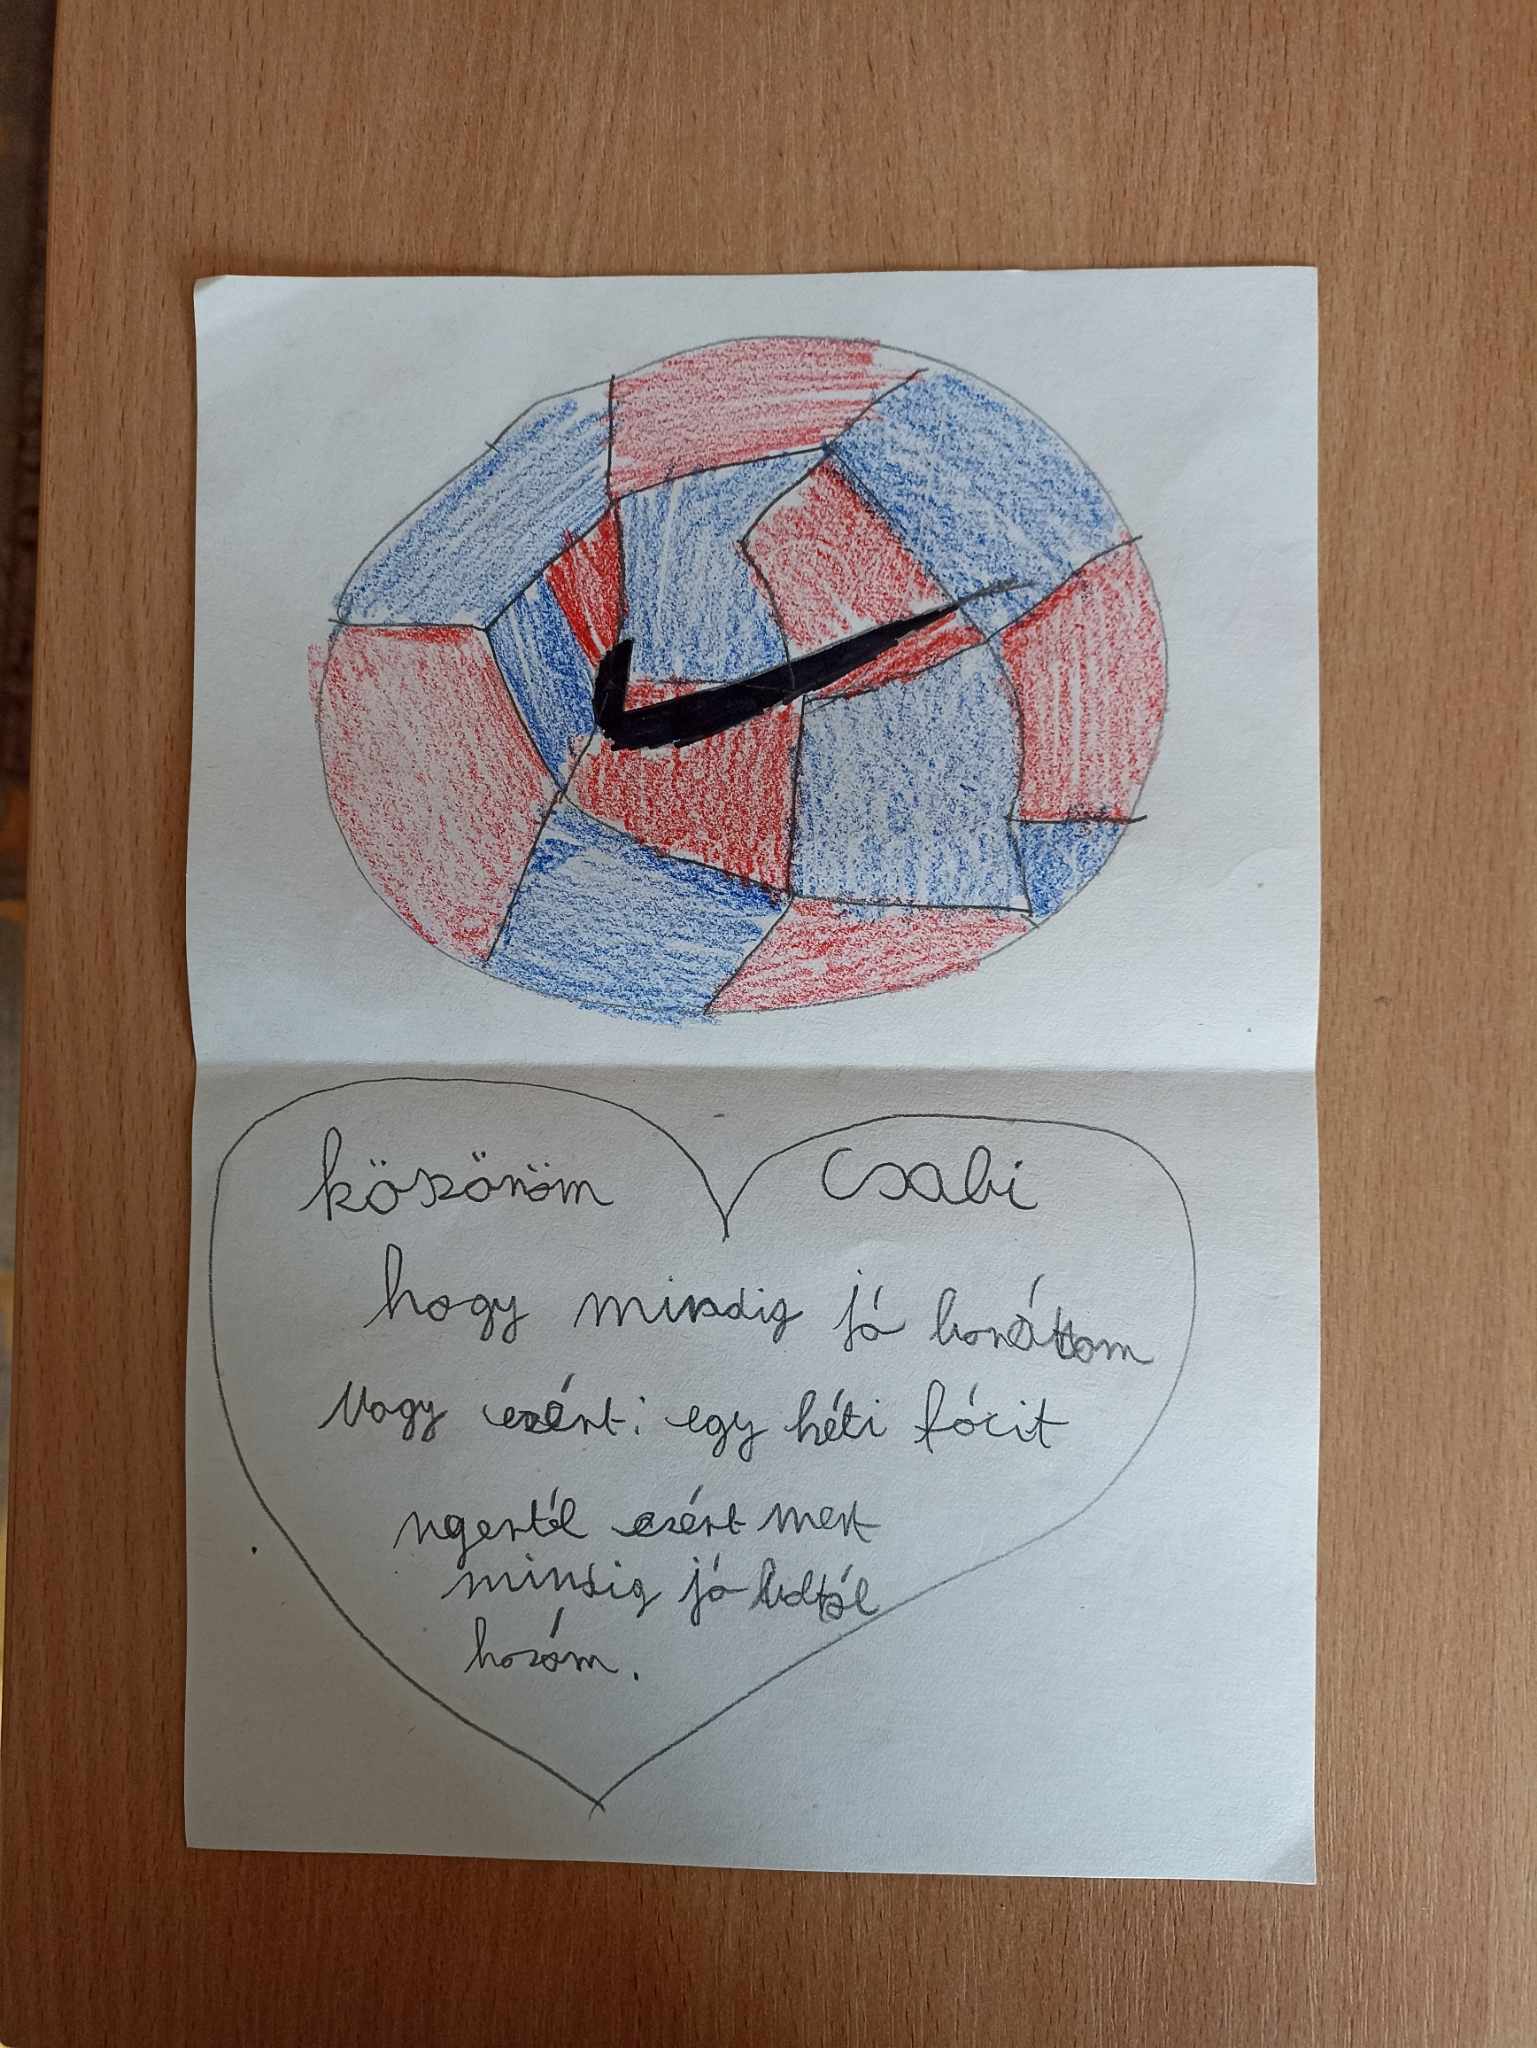 köszönöm Csabi
hogy mindig jó
Vagy ezért: egy héti fócit
nyertél ezért mert
mindig jó
hozám.